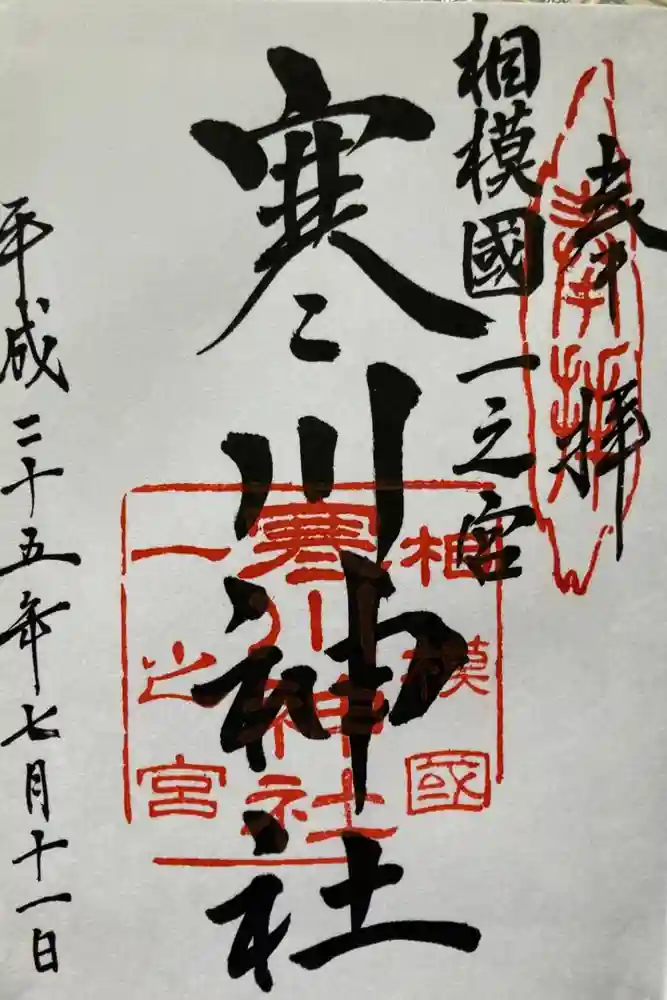 奉拝
奉拝
相模國一之宮
寒川神社
相模國
寒川神社
一之宮
平成二十五年七月十一日